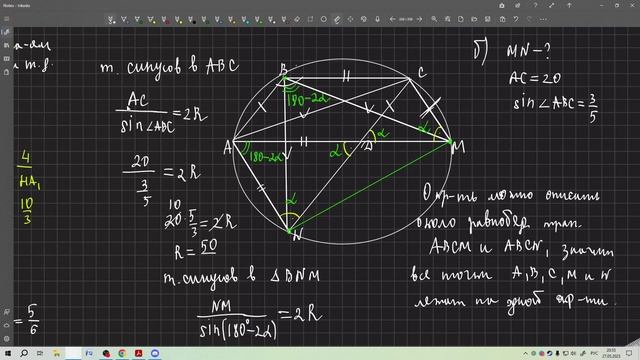 Notes - Inkodo
а-ам
и т. д.
4
HA₁
10
3
= 5/6
т. синусов в ABC
AC / sin∠ABC = 2R
20 / (3/5) = 2R
10
20·5/3 = 2R
R = 50
т. синусов в △BNM
NM / sin(180°-2α) = 2R
B
C
A
D
M
N
180-2α
180-2α
α
α
α
α
δ)
MN-?
AC = 20
sin∠ABC = 3/5
Окр-ть можно описать
около равнобед. трап.
ABCM и ABCN, значит
все точки A, B, C, M и N
лежат на одной окр-ти.
РУС
20:55
27.05.2023